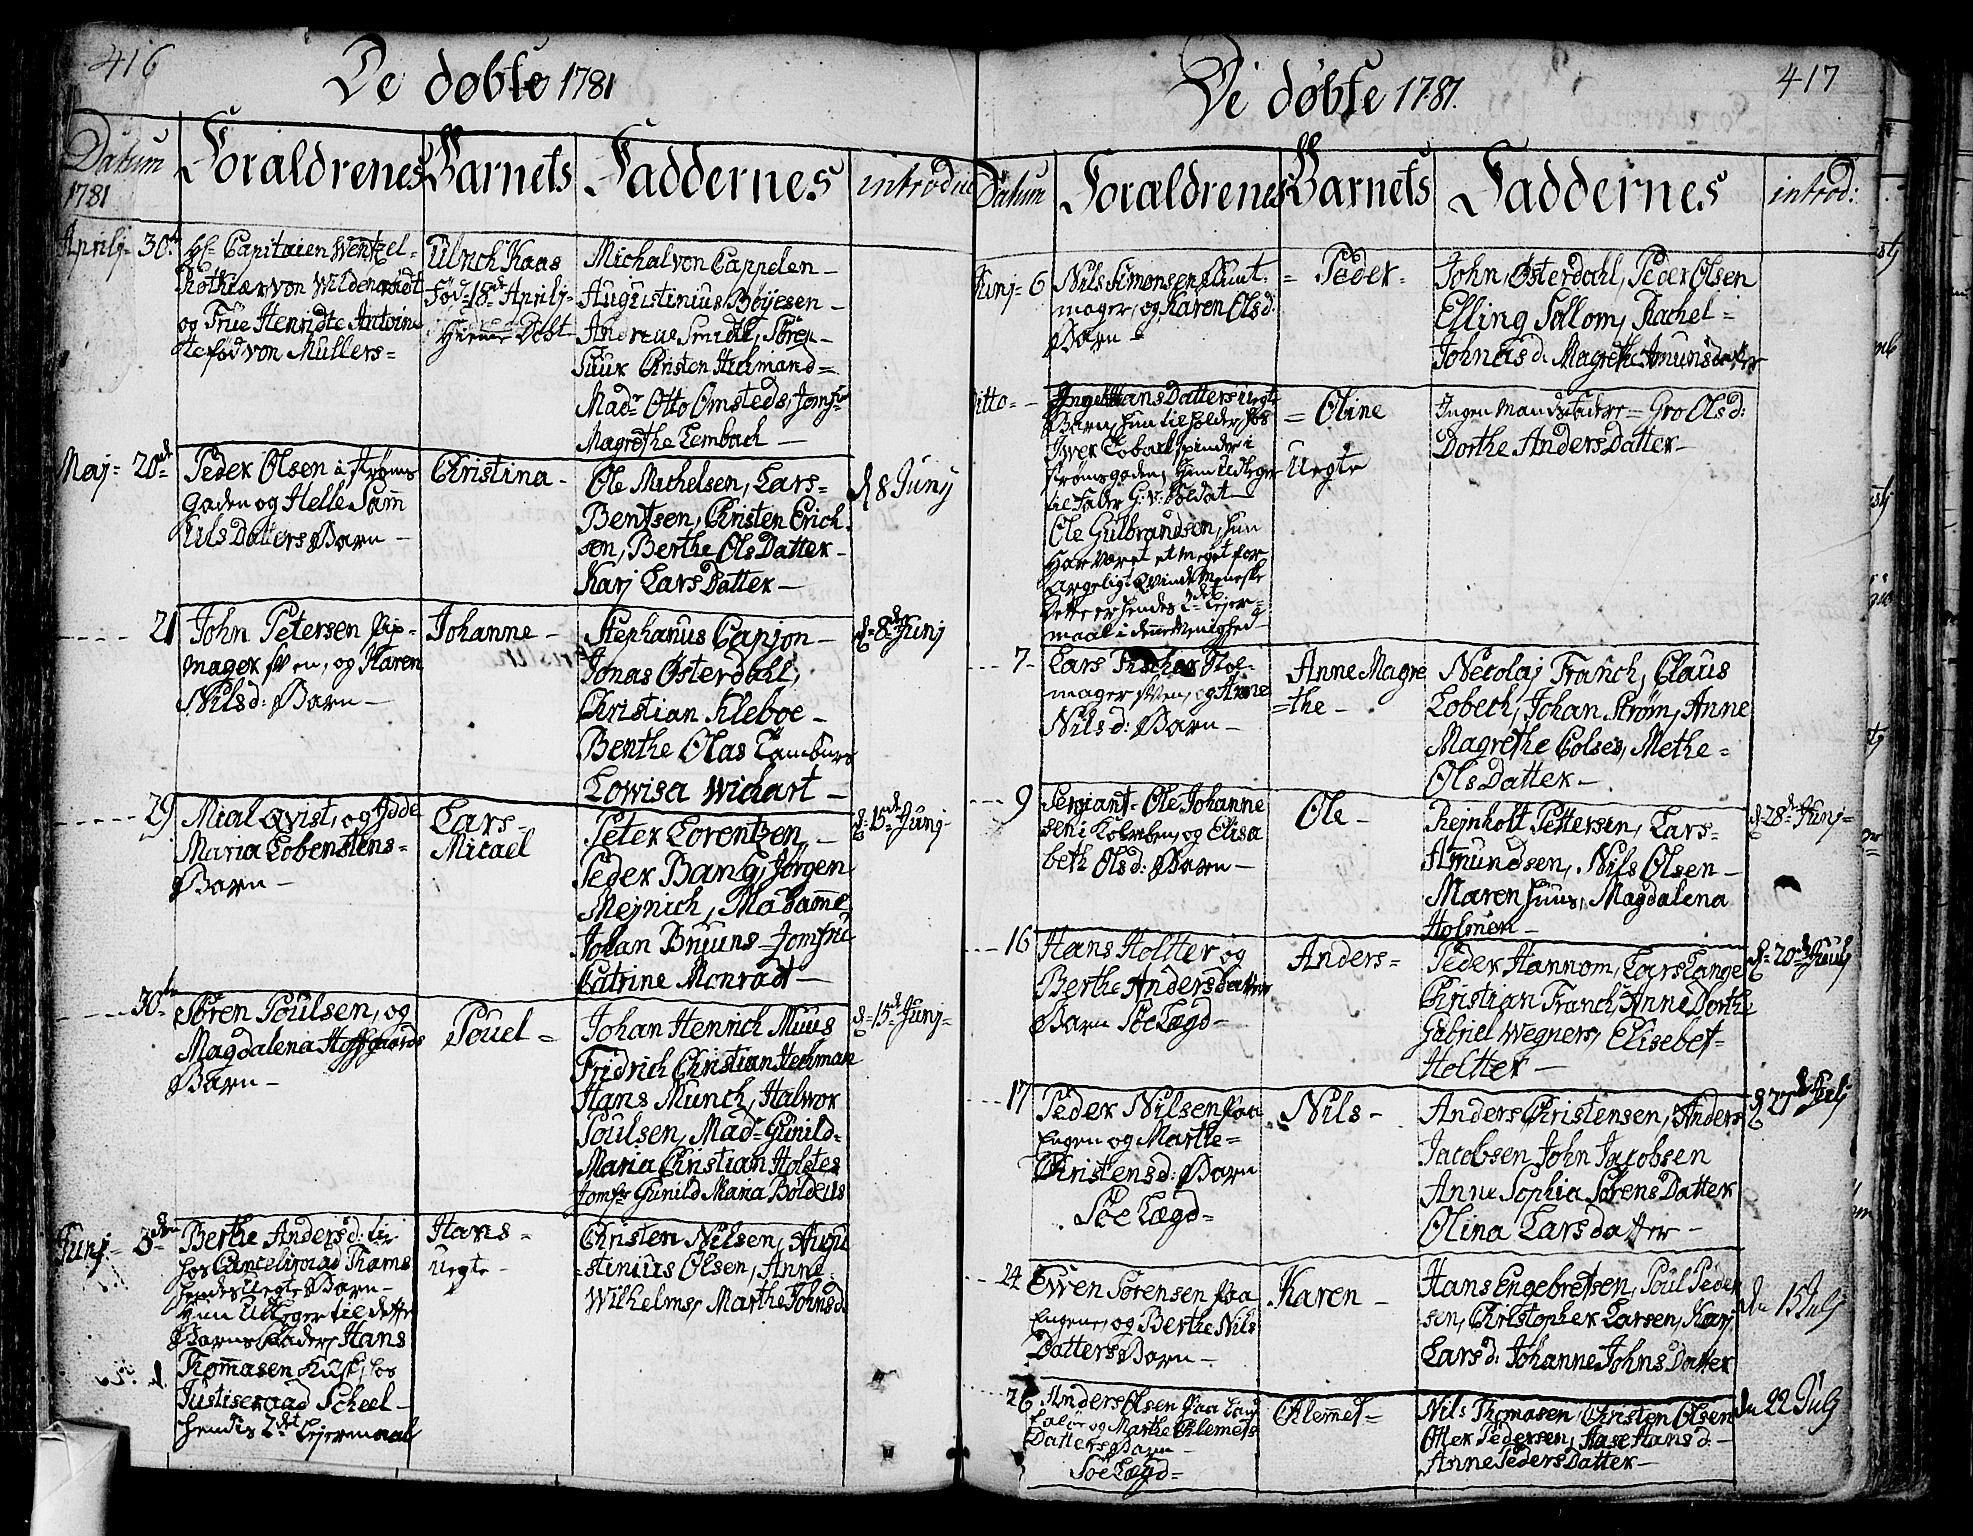 416
De døbte 1781
Datum
1781
Foraldrenes
Barnets
Faddernes
introdu
Aprilj 30te
Hr Capitaien Wentzel-
Rothiær von Wildenrødt
og Früe Henridte Antoine
tte fød von Mullers =
Ulrich Kaas
Fød 18de Aprilj-
Hieme Døbt
Michal von Cappelen -
Augustinius Bøyesen -
Andreas Smidth, Sören -
Christen Heilmand =
Madr Otto Omsteds, Jomfr
Magrethe Lembach -
Maj = 20de
Peder Olsen i Strøms
gaden og Helle Sam
uls Datters Barn -
Christina -
Ole Michelsen, Lars-
Bentsen, Christen Erich
sen, Berthe Ols Datter -
Karj Lars Datter -
d 8 Junij
21
John Petersen Pip-
mager sven, og Karen
Nilsd: Barn -
Johanne -
Stephanus Capjon -
Jonas Østerdahl,
Christian Kleboe -
Benthe Olas
Lowisa Wichart -
d= 8de Junj
29
Mical Qvist, og Ydde
Maria Lobenstens =
Barn -
Lars-
Micael
Peter Lorentzen, -
Peder Bang, Jørgen
Mejnich, Madamme
Johan Bruuns = Jomfrue
Catrine Monradt -
d= 15de Junj
30te
Søren Poulsen, og
Magdalena Hoffgaards
Barn -
Pouel =
Johan Henrich Muus
Fridrich Christian Heilman
Hans Munch, Halwor
Poulsen, Madr Gunild-
Maria Christian Holstes
Jomfr Gunild Maria Boldeus
d= 15de Junj-
Junj- 3die
Berthe Andersd:
hos Cancelieraad Thams
hendes Uegte Barn -
Hun Utleger til dette
Barns Fader, Hans
Thommasen Kusk, hos
Justiseraad Scheel-
hendis 2det Lejermaal
Hans =
Uegte -
Christen Nilsen, Augu
=stinius Olsen, Anne
Wilhelms, Marthe Johnsd.
417
De døbte 1781.
Datum
Foraldrenes
Barnets
Faddernes
introd:
Junj= 6
Nils Simonsen Bunt-
mager, og Karen Olsd:
Barn -
= Peder =
John Østerdahl, Peder Olsen
Elling Sollom, Rachel =
Johnasd. Magrethe Amunsdatter
itto -
Inge Hans Datters Uegte
Barn, hun tilholder, hos
Iver Lobach, Spinder i
Strømsgaden, hun Udleger
til Fader G: v: Soldat -
Ole Gulbrandsen, hun
har været et meget for
argeligt Qvinde Menneske
dette er hendes 2det Lejer=
maal i denne Menighed -
= Oline
Uegte
Ingen Mands Faddere = Gro Olsd:
Dorthe Anders Datter -
7 -
Lars Fischer Stol-
mager sven, og Anne
Nilsd: Barn -
Anne Magre
=the -
Necolaj Franch, Claus
Lobech, Johan Strøm, Anne
Magrethe Colses, Methe =
Ols Datter -
9
Sergiant Ole Johanne
sen i og Elisa
beth Olsd: Barn -
Ole -
Rejnholt Pettersen, Lars-
Amundsen, Nils Olsen -
Maren Huus, Magdalena
Holmer -
d= 28de Junj =
16
Hans Holtter og
Berthe Andersdatter
Barn Søe Lægd -
Anders =
Peder Hannom, Lars Lange
Christian Franch, Anne Dorthe
Gabriel Wegners, Elisebet =
Holtter -
d= 20de
17
Peder Nilsen paa
Engen og Marthe =
Christensd: Barn
Søe Lægd =
Nils -
Anders Christensen, Anders
Jacobsen John Jacobsen
Anne Sophia Sørens Datter
Olina Larsdatter -
24
Ewen Sørensen paa
Engene, og Berthe Nils
Datters Barn -
Karen -
Hans Engebretsen, Poul Peder
sen, Christopher Larsen, Karj
Larsd: Johanne Johns Datter
dn 15 Julj
26
Anders Olsen paa
og Marthe Clemets
Datters Barn -
Søe Lægd =
Clemmet =
Nils Thomasen, Christen Olsen
Otter Pedersen, Hansd -
Anne Peders Datter -
dn 22 Julj